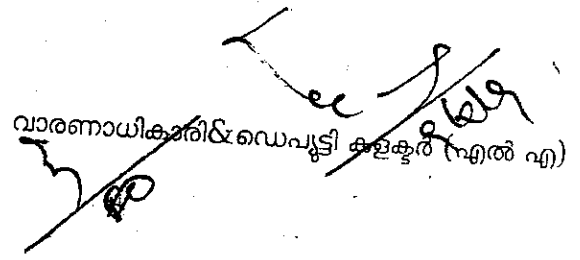 വാരണാധികാരി&ഡെപ്യൂട്ടി കളക്ടർ (എൽ എ)